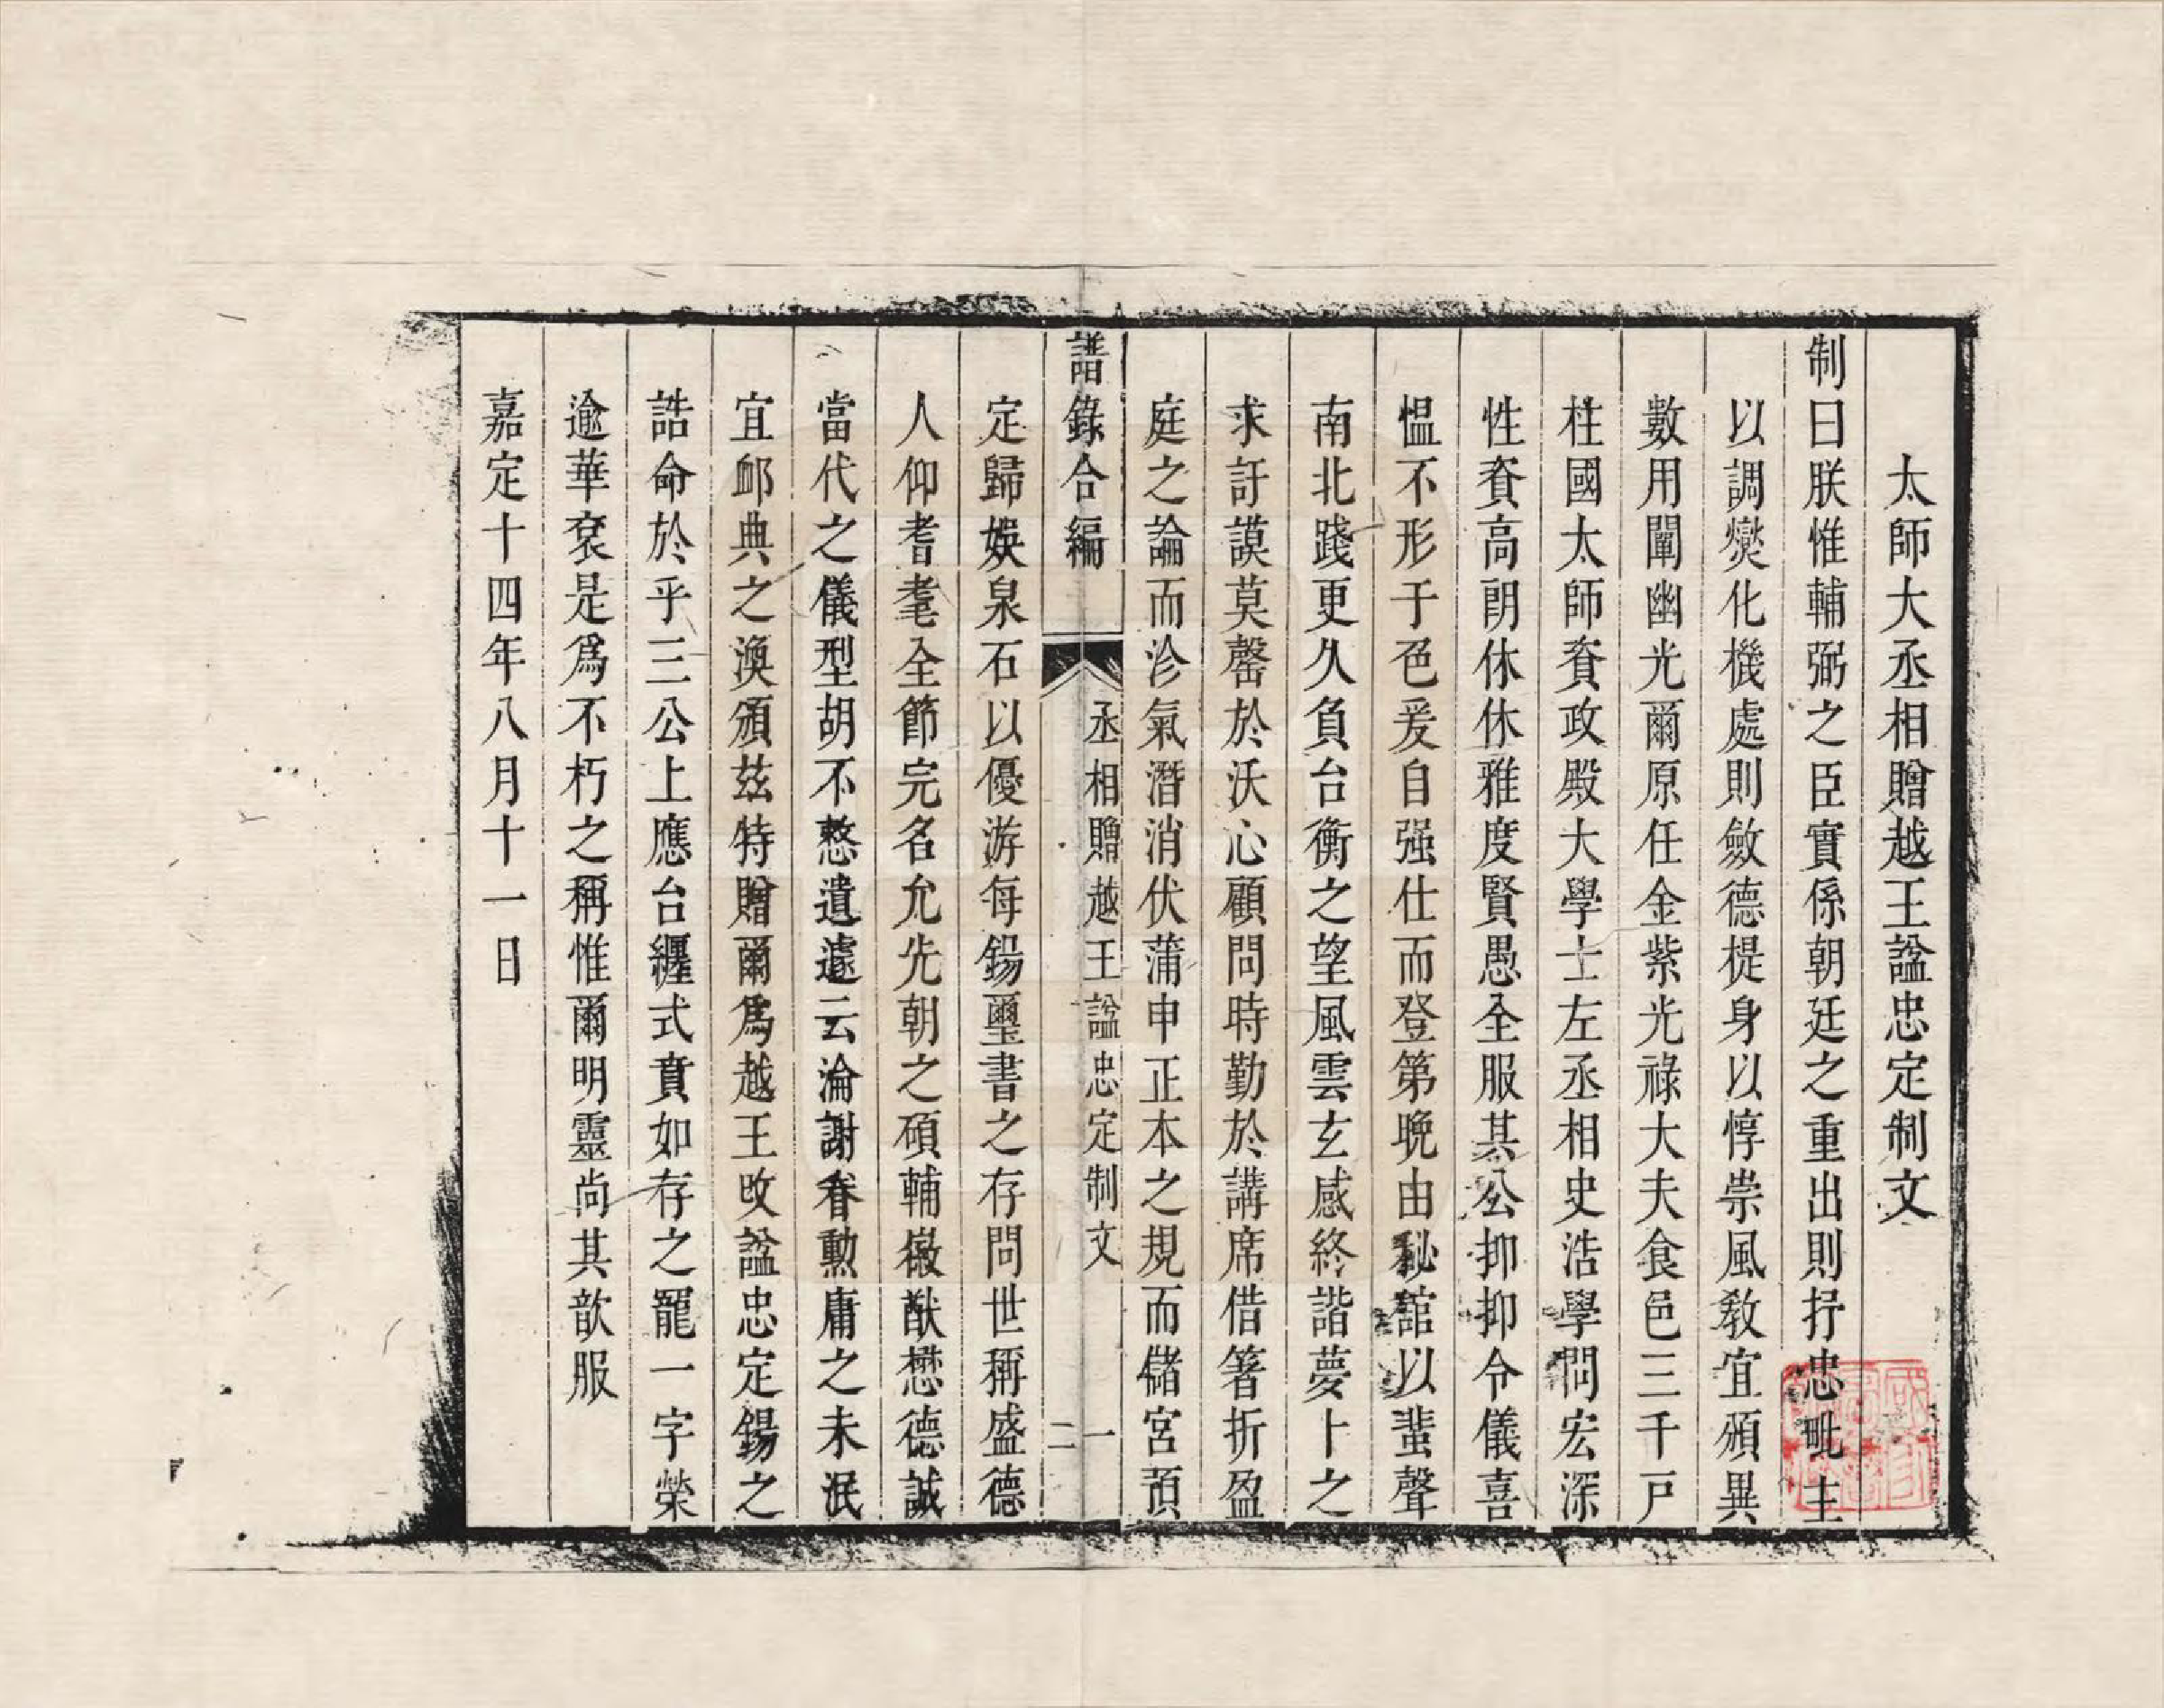 太師大丞相贈越王諡忠定制文
制曰朕惟輔弼之臣實係朝廷之重出則抒忠毗主
以調爕化機處則斂德提身以惇崇風敎宜頒異
數用闡幽光爾原任金紫光祿大夫食邑三千戸
柱國太師資政殿大學士左丞相史浩學問宏深
性資高朗休休雅度賢愚全服其公抑抑令儀喜
愠不形于色爰自强仕而登第晚由秘館以蜚聲
南北踐更久負台衡之望風雲玄感終諧夢卜之
求訏謨莫罄於沃心顧問時勤於講席借箸折盈
庭之論而沴氣潛消伏蒲申正本之規而儲宮預
譜錄合編
丞相贈越王諡忠定制文
一
二
定歸娛泉石以優游每錫璽書之存問世稱盛德
人仰耆耄全節完名允先朝之碩輔徽猷懋德誠
當代之儀型胡不憗遺遽云淪謝眷勲庸之未泯
宜卹典之渙頒茲特贈爾爲越王改諡忠定錫之
誥命於乎三公上應台纏式賁如存之寵一字榮
逾華袞是爲不朽之稱惟爾明靈尚其歆服
嘉定十四年八月十一日